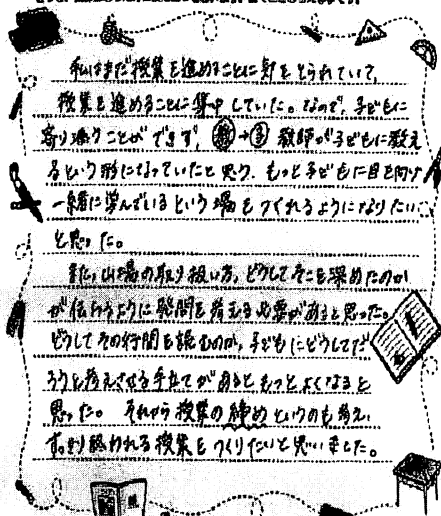 私はまだ授業を進めることに気をとられていて、
授業を進めることに集中していた。なので、子どもに
寄り添うことができず、教→子 教師が子どもに教え
るという形になっていたと思う。もっと子どもに目を向け
一緒に学んでいるという場をつくれるようになりたい
と思った。
また、山場の取り扱い方、どうしてそこを深めたのか
が伝わるように発問を考える必要があると思った。
どうしてその行間を読むのか、子どもにどうしてだ
ろうと考えさせる手立てがあるともっとよくなると
思った。それから授業の締めというのも考え、
すっきり終われる授業をつくりたいと思いました。